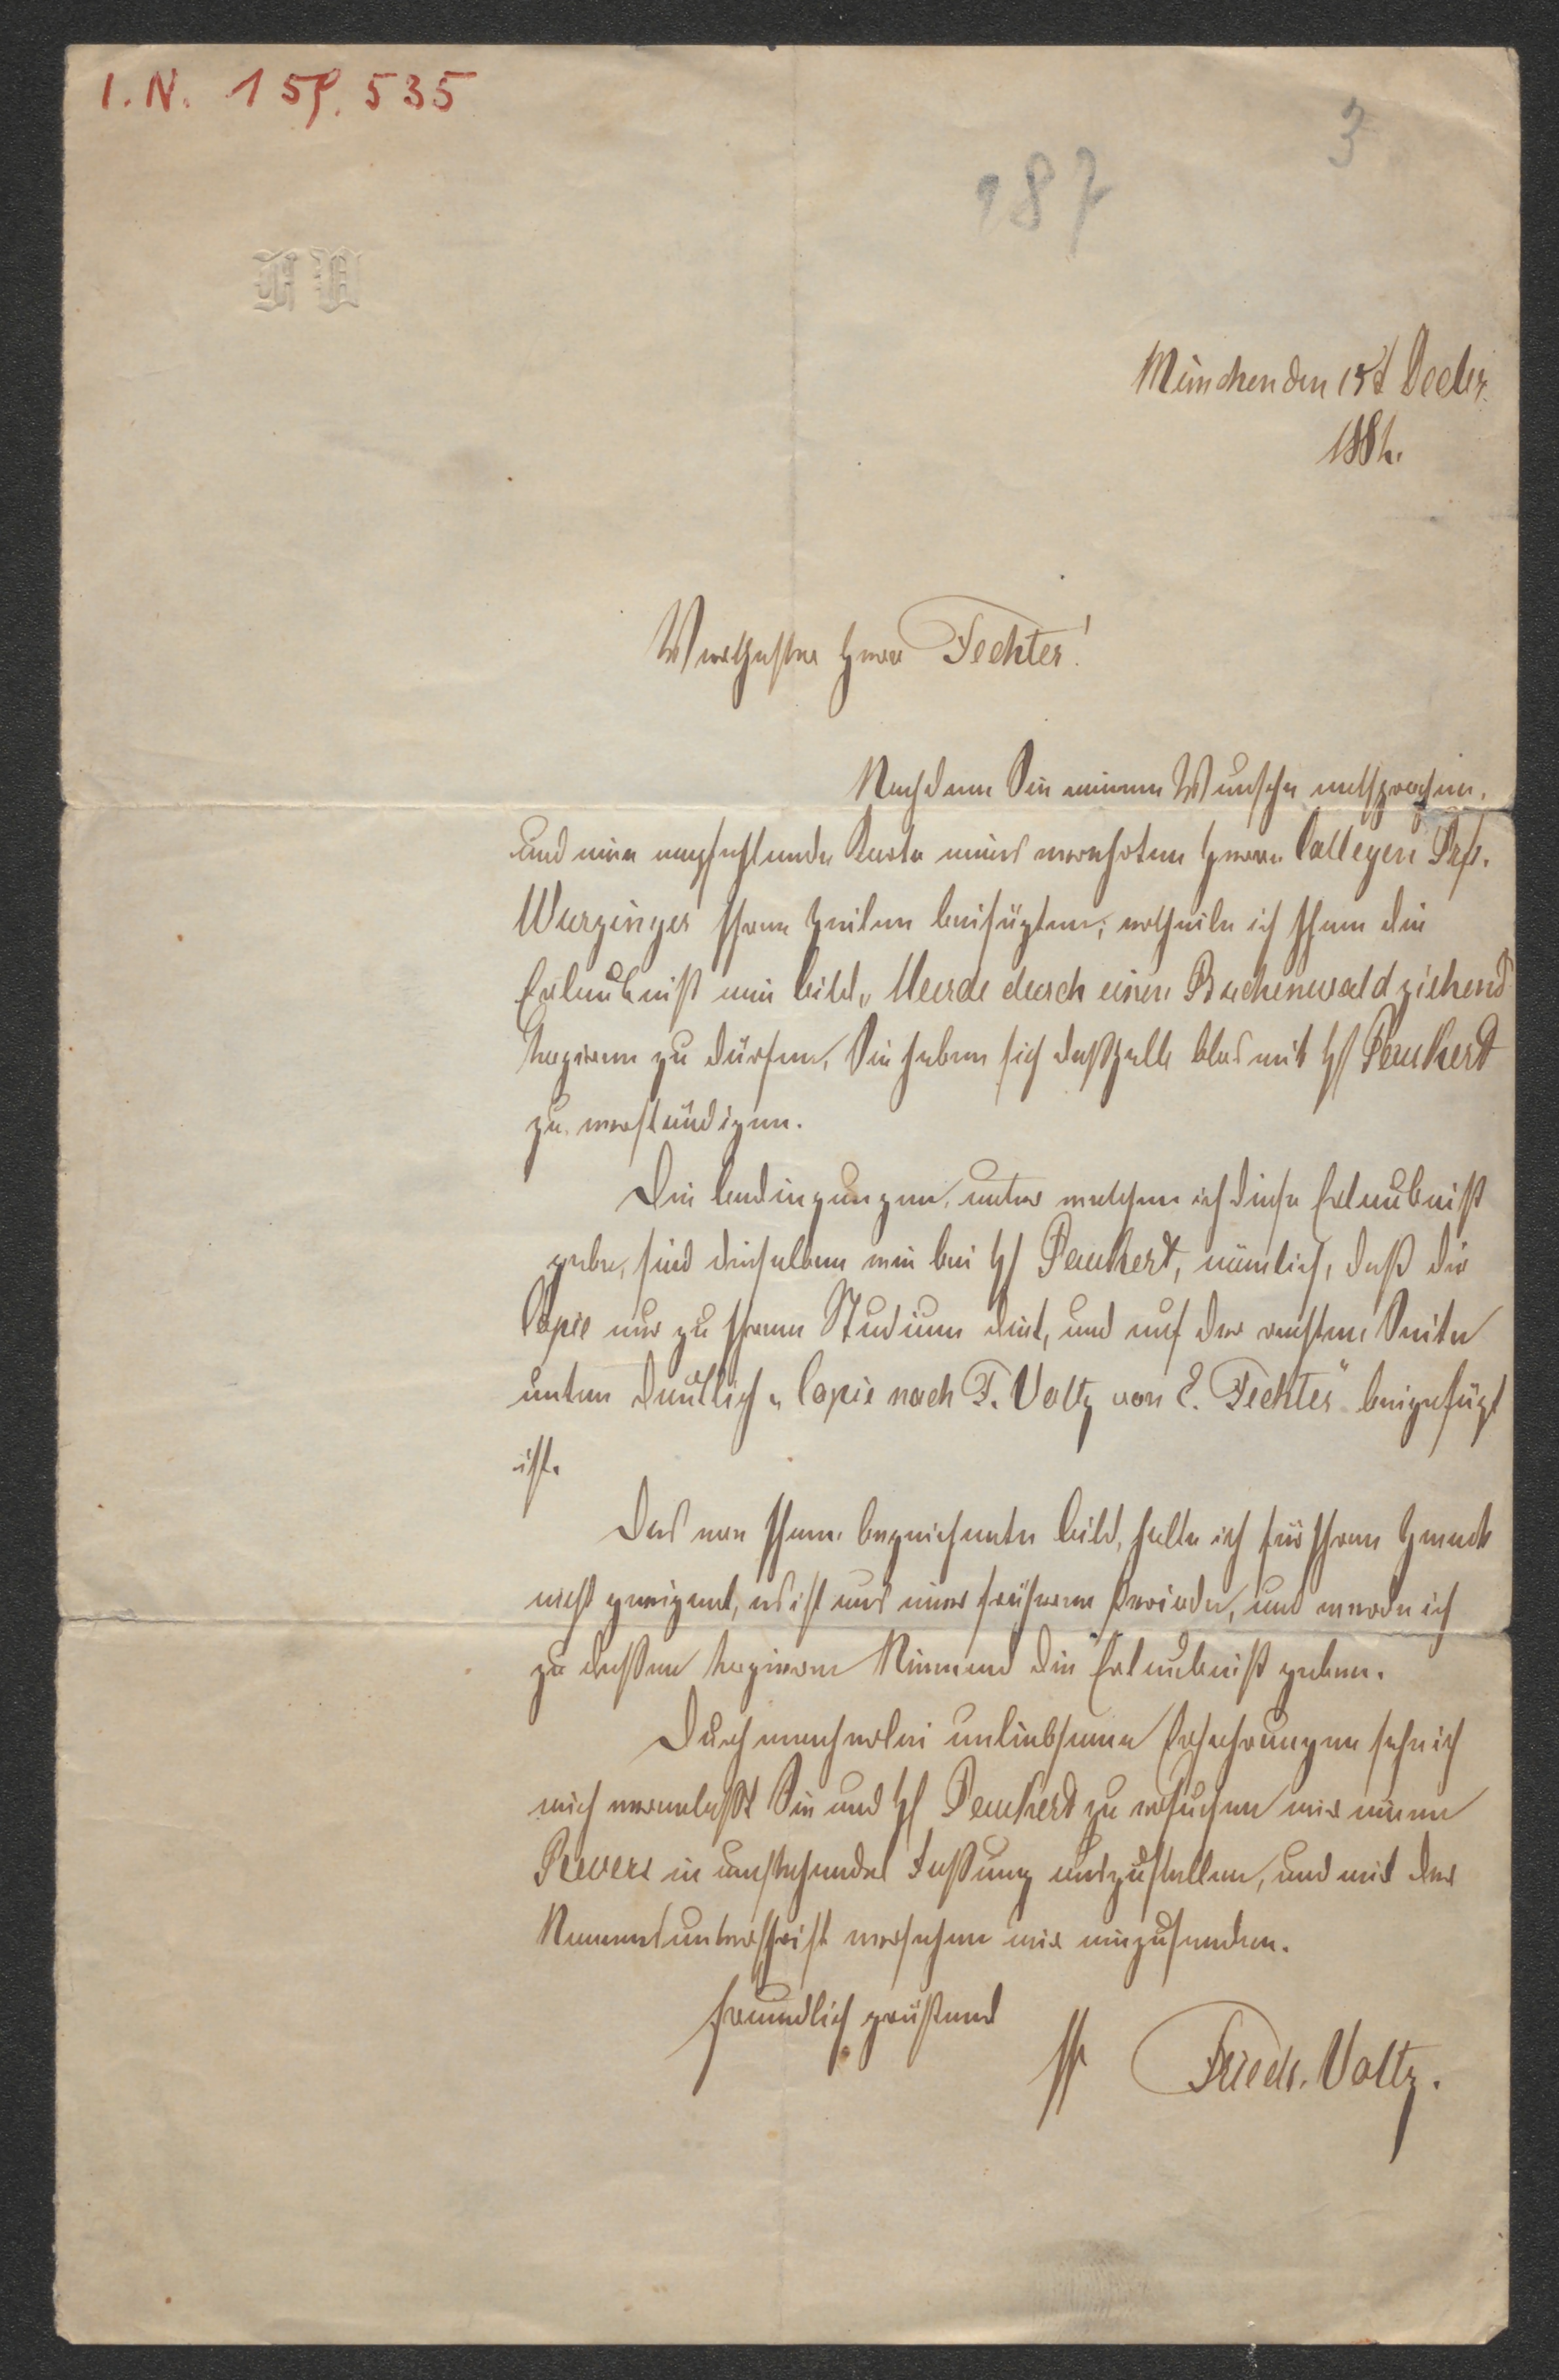 I.N. 159.535
3
187
FV
München den 15t Decbr.
1881.
Werthester Herr Fechter!
Nachdem Sie meinem Wunsche entsprochen,
und eine empfehlende Karte meines verehrten Herrn Collegen Prfs.
Wurzinger Ihren Zeilen beifügten; ertheile ich Ihnen die
Erlaubniß mein Bild „Heerde durch einen Buchenwald ziehend
kopieren zu dürfen, Sie haben sich deßhalb blos mit H Peukert
zu verständigen.
Die Bedingungen, unter welchen ich diese Erlaubniß
gebe, sind dieselben wie bei H Peukert, nämlich, daß die
Copie nur zu Ihrem Studium dient, und auf der rechten Seite
unten deutlich „Copie nach F. Voltz von E. Fechter" beigefügt
ist.
Das von Ihnen bezeichnete Bild, halte ich für Ihren Zweck
nicht geeignet, es ist aus einer früheren Periode, und werde ich
zu deßen kopieren Niemand die Erlaubniß geben.
Durch mancherlei unliebsame Erfahrungen sehe ich
mich veranlaßt Sie und H Peukert zu ersuchen mir einen
Revers in umstehender Faßung auszustellen, und mit der
Namensunterschrift versehen mir einzusenden.
freundlich grüßend
Ihr Friedr. Voltz.